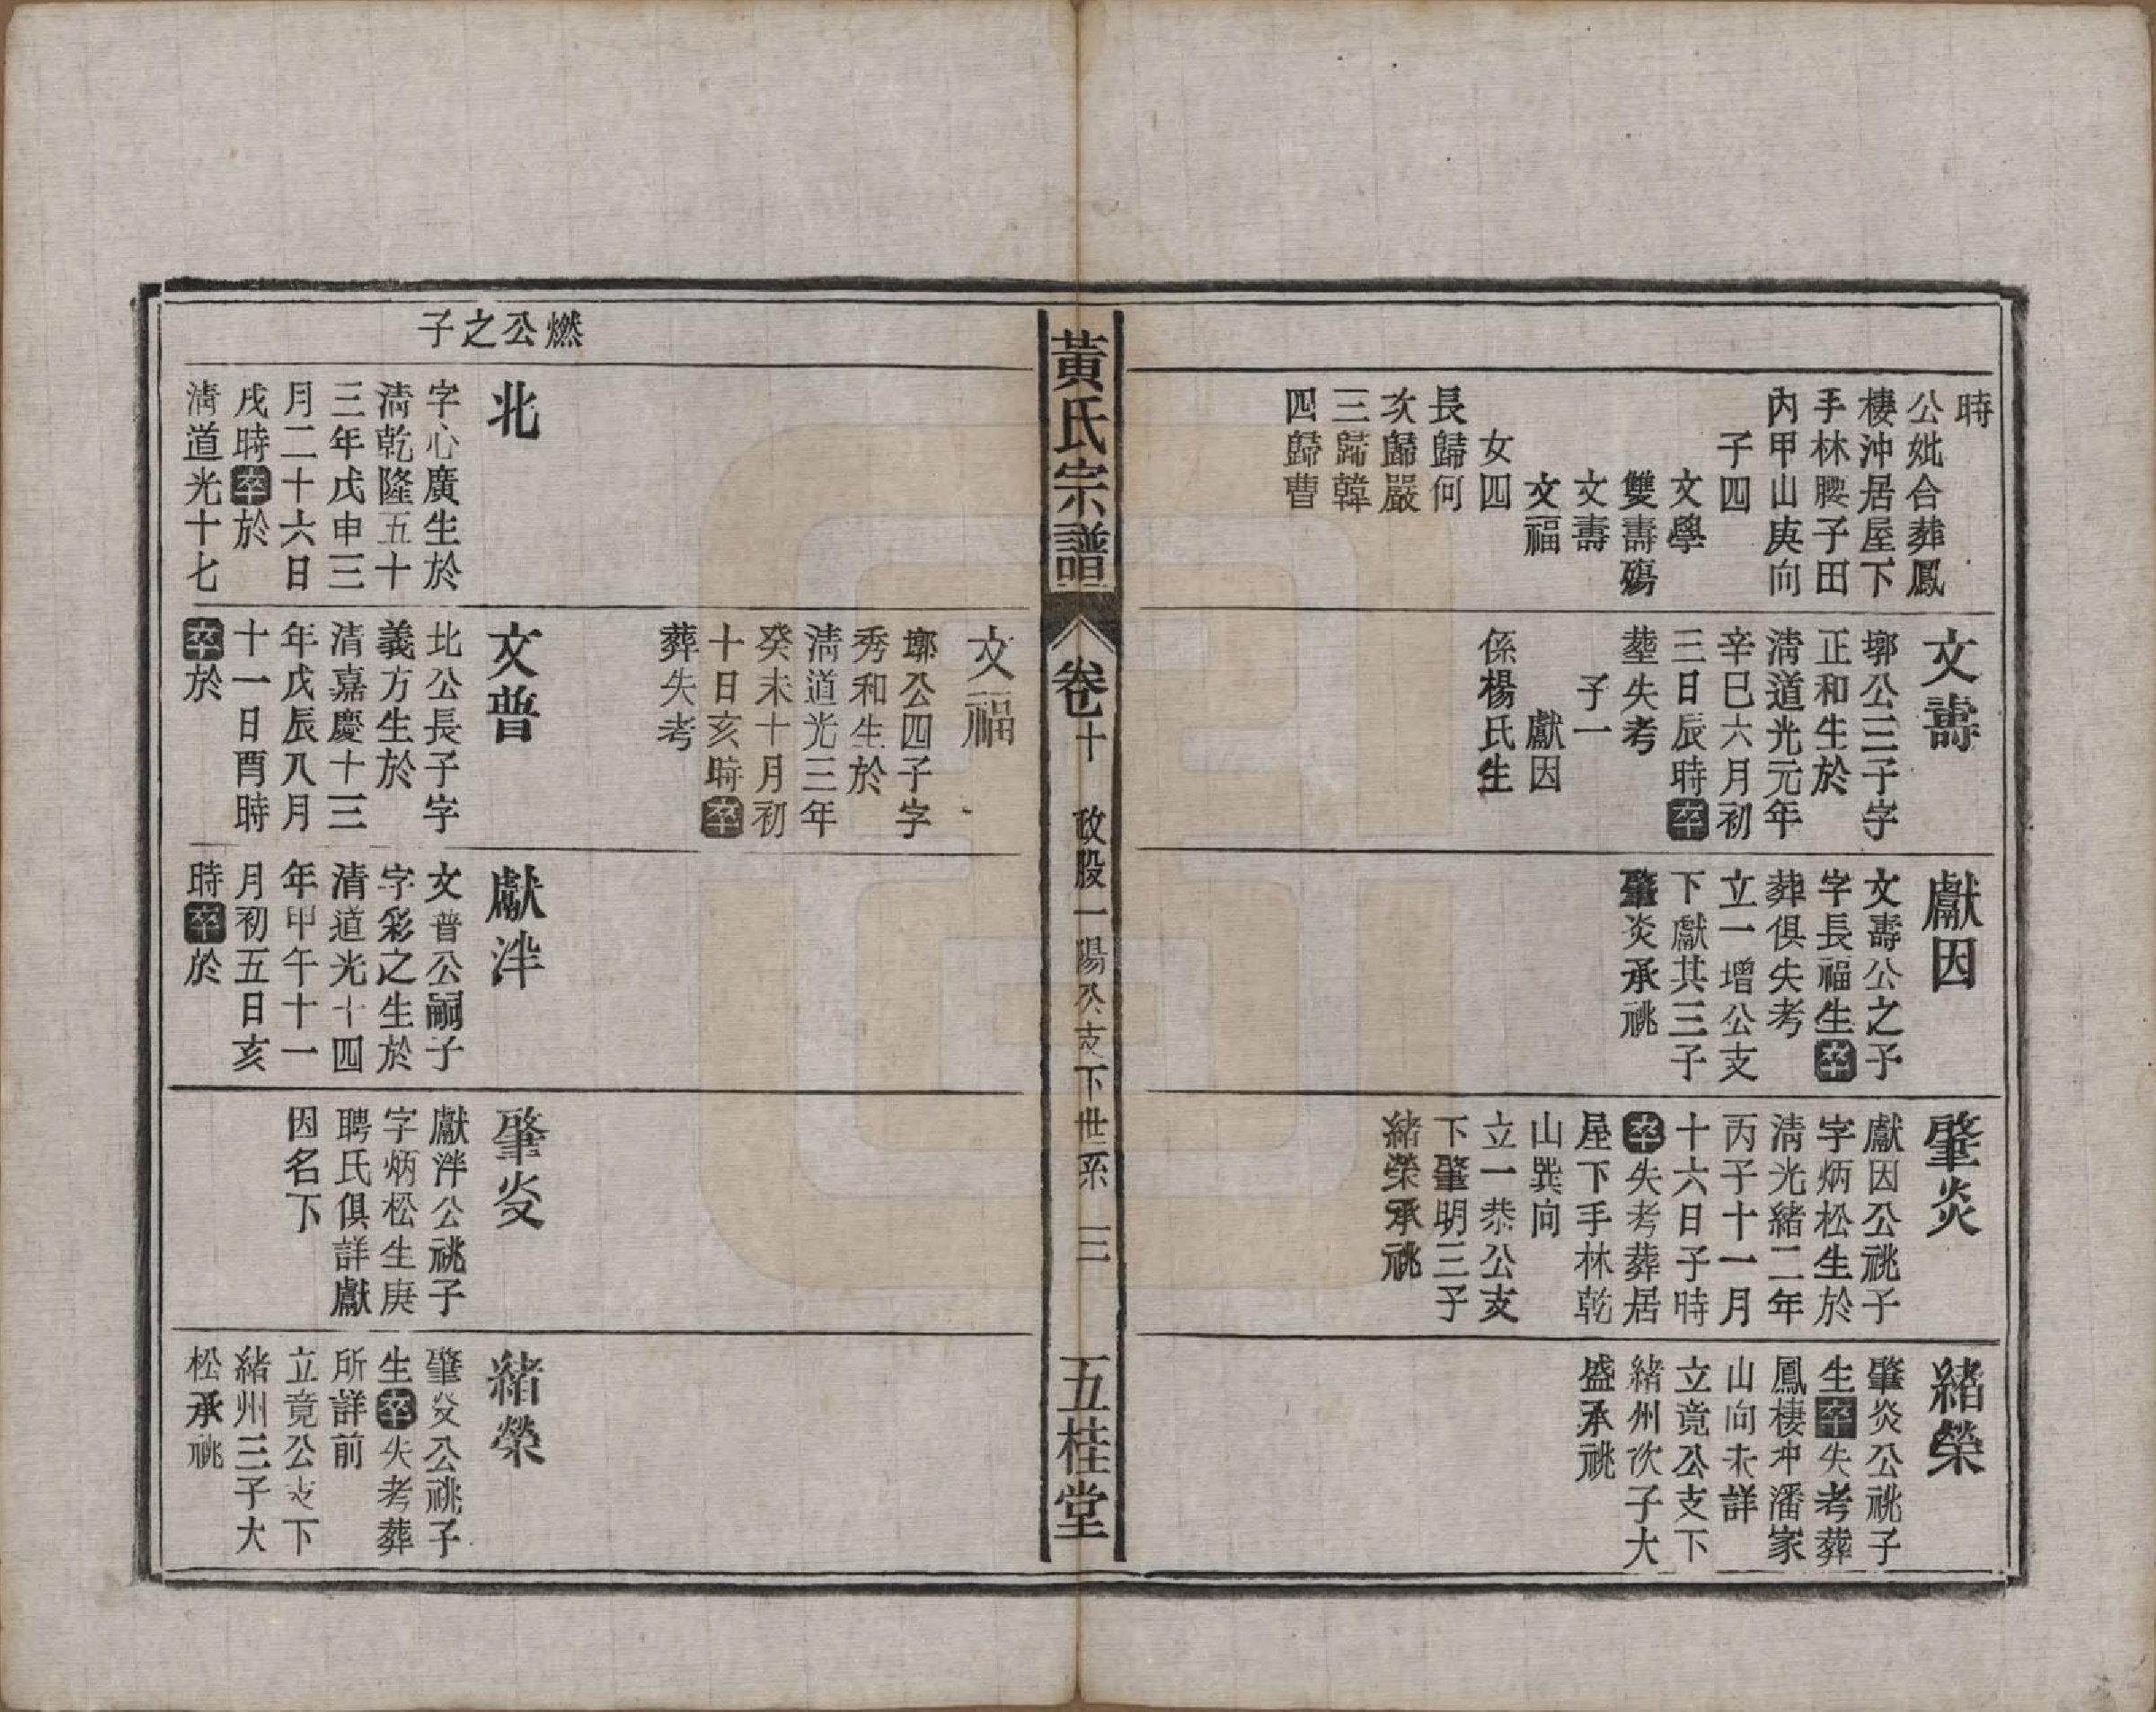 時
公妣合葬鳳
棲沖居屋下
手林腰子田
內甲山庚向
子四
文學
雙壽殤
文壽
文福
女四
長歸何
次歸嚴
三歸韓
四歸曹
文壽
墎公三子字
正和生於
清道光元年
辛巳六月初
三日辰時卒
塟失考
子一
獻因
係楊氏生
獻因
文壽公之子
字長福生卒
葬俱失考
立一增公支
下獻其三子
肇炎承祧
肇炎
獻因公祧子
字炳松生於
清光緒二年
丙子十一月
十六日子時
卒失考葬居
屋下手林乾
山巽向
立一恭公支
下肇明三子
緒榮承祧
緒榮
肇炎公祧子
生卒失考葬
鳳棲冲潘家
山向未詳
立竟公支下
緒州次子大
盛承祧
黃氏宗譜
卷十
政股一陽公支下世系
三
五桂堂
文福
墎公四子字
秀和生於
清道光三年
癸未十月初
十日亥時卒
葬失考
燃公之子
北
字心廣生於
清乾隆五十
三年戊申三
月二十六日
戌時卒於
清道光十七
文普
北公長子字
義方生於
清嘉慶十三
年戊辰八月
十一日酉時
卒於
獻泮
文普公嗣子
字彩之生於
清道光十四
年甲午十一
月初五日亥
時卒於
肇炎
獻泮公祧子
字炳松生庚
聘氏俱詳獻
因名下
緒榮
肇炎公祧子
生卒失考葬
所詳前
立竟公支下
緒州三子大
松承祧